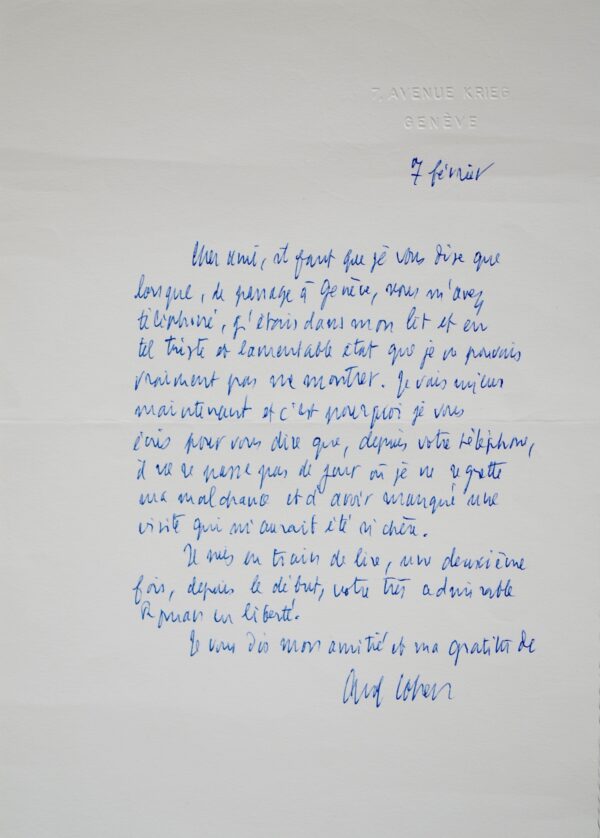 7, AVENUE KRIEG
GENÈVE
7 février
Cher ami, il faut que je vous dise que
lorsque, de passage à Genève, vous m'avez
téléphoné, j'étais dans mon lit et en
tel triste et lamentable état que je ne pouvais
vraiment pas me montrer. Je vais mieux
maintenant et c'est pourquoi je vous
écris pour vous dire que, depuis votre téléphone,
il ne se passe pas de jour où je ne regrette
ma malchance et d'avoir manqué une
visite qui m'aurait été si chère.
Je suis en train de lire, une deuxième
fois, depuis le début, votre très admirable
Roman en liberté.
Je vous dis mon amitié et ma gratitude
Cohen